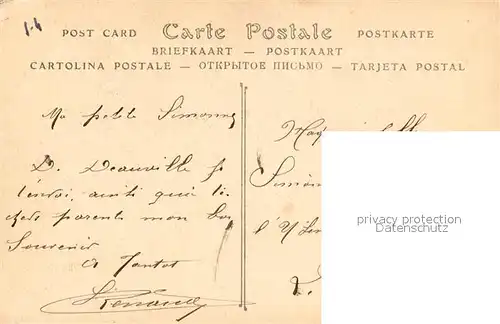 1-4
POST CARD Carte Postale POSTKARTE
BRIEFKAART — POSTKAART
CARTOLINA POSTALE — ОТКРЫТОЕ ПИСЬМО — TARJETA POSTAL
Ma petite Simonne
D. Deauville je
t'envoi, ainsi qu'a tes
chers parents mon bon
Souvenir
A Tantot
Renaud
Simon
privacy protection
ansichtskartenhandel.de